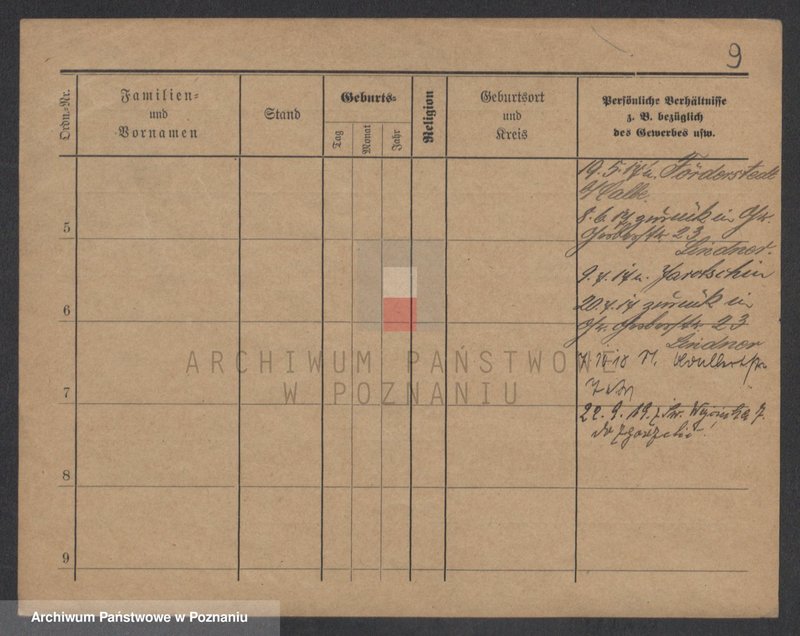 9
Ordn.-Nr.
Familien=
und
Vornamen
Stand
Geburts=
Tag
Monat
Jahr
Religion
Geburtsort
und
Kreis
Persönliche Verhältnisse
z. B. bezüglich
des Gewerbes usw.
19.5.17 n. Förderstedt
Calbe
8.6.17 zurück in Gr.
Gerberstr. 23
Lindner.
9.7.17 n. Jarotschin
20.7.17 zurück in
Gr. Gerberstr. 23
Lindner
22.9.19.
do
5
6
7
8
9
ARCHIWUM PAŃSTWOWE
W POZNANIU
Archiwum Państwowe w Poznaniu